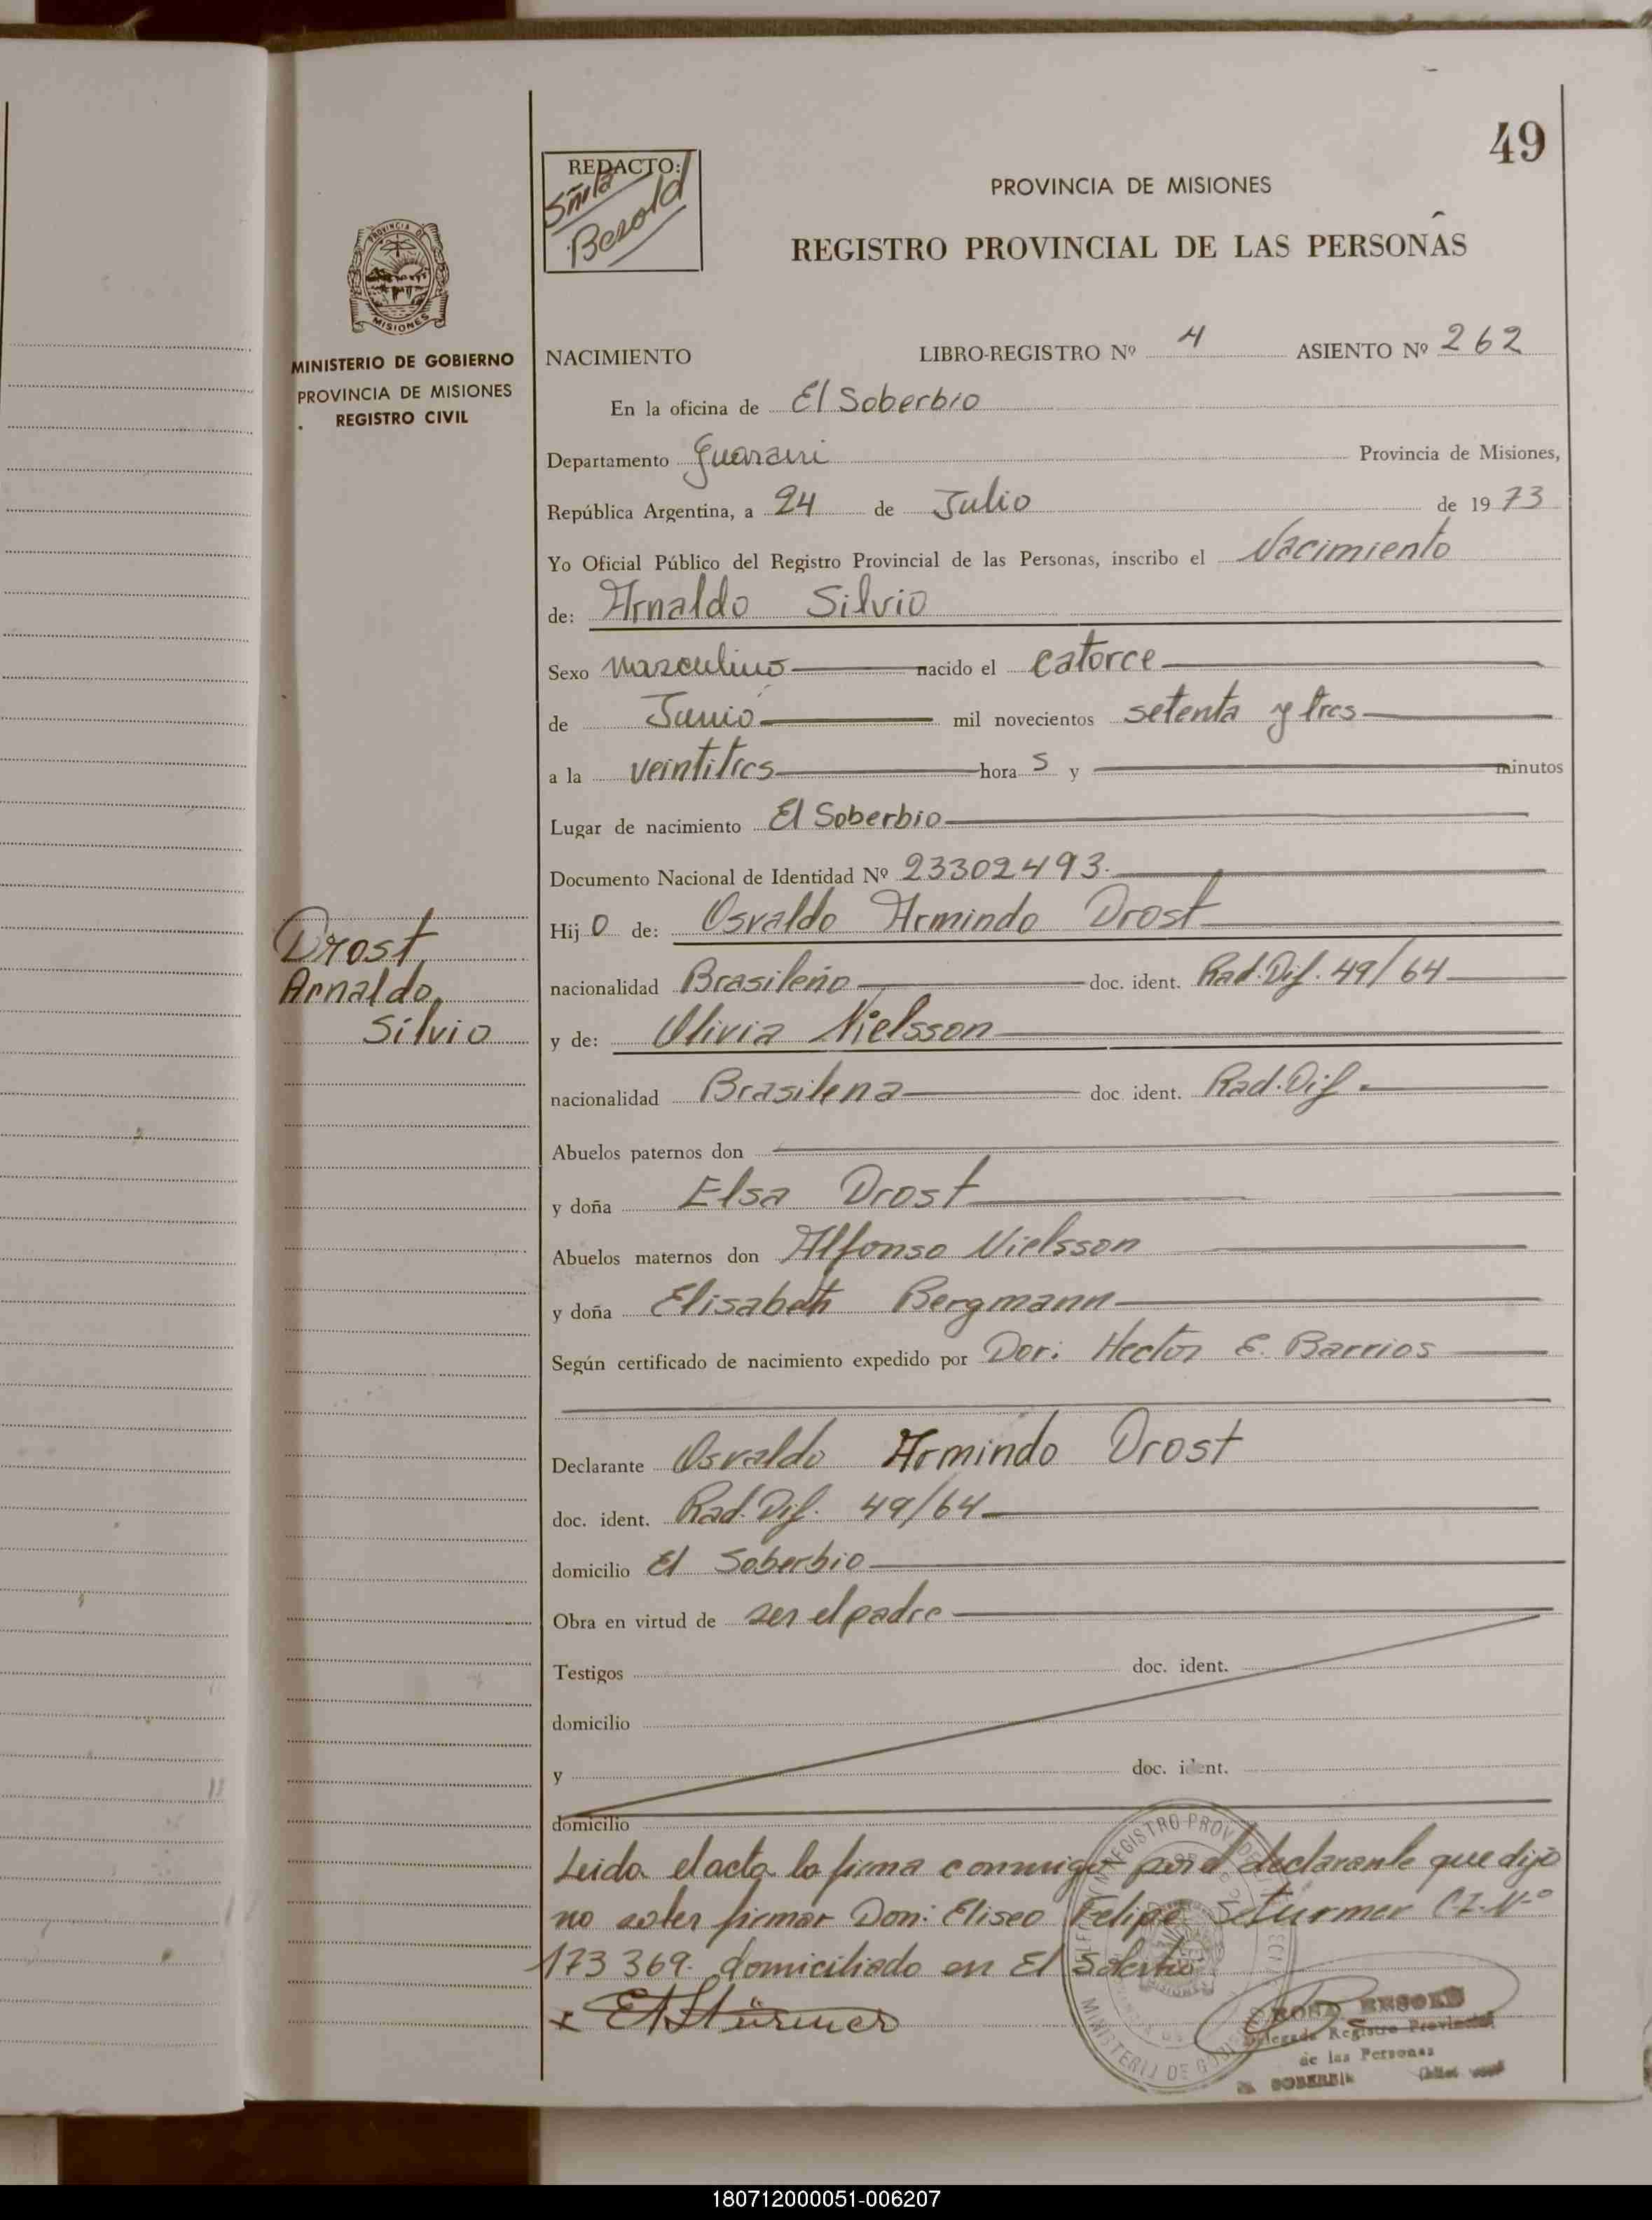 49
REDACTO:
Sñita
Besold
PROVINCIA DE MISIONES
REGISTRO PROVINCIAL DE LAS PERSONAS
PROVINCIA DE
MISIONES
MINISTERIO DE GOBIERNO
PROVINCIA DE MISIONES
REGISTRO CIVIL
NACIMIENTO LIBRO-REGISTRO Nº 4 ASIENTO Nº 262
En la oficina de El Soberbio
Departamento Guarani Provincia de Misiones,
República Argentina, a 24 de Julio de 1973
Yo Oficial Público del Registro Provincial de las Personas, inscribo el Nacimiento
de: Arnaldo Silvio
Sexo masculino nacido el catorce
de Junio mil novecientos setenta y tres
a la veintitres hora s y minutos
Lugar de nacimiento El Soberbio
Documento Nacional de Identidad Nº 23302493.
Hijo de: Osvaldo Armindo Drost
nacionalidad Brasileño doc. ident. Rad. Dif. 49/64
y de: Olivia Nielsson
nacionalidad Brasilena doc. ident. Rad. Dif.
Abuelos paternos don
y doña Elsa Drost
Abuelos maternos don Alfonso Nielsson
y doña Elisabeth Bergmann
Según certificado de nacimiento expedido por Dor: Hector E. Barrios
Declarante Osvaldo Armindo Drost
doc. ident. Rad. Dif. 49/64
domicilio El Soberbio
Obra en virtud de ser el padre
Testigos doc. ident.
domicilio
y doc. ident.
domicilio
Leida el acta la firma conmigo por el declarante que dijo
no saber firmar Don: Eliseo Felipe Sturmer CI. Nº
173 369. domiciliado en El Soberbio
x E F Stürmer
ROSA BESOLD
Delegada Registro Provincial
de las Personas
EL SOBERBIO
Drost,
Arnaldo,
Silvio
180712000051-006207